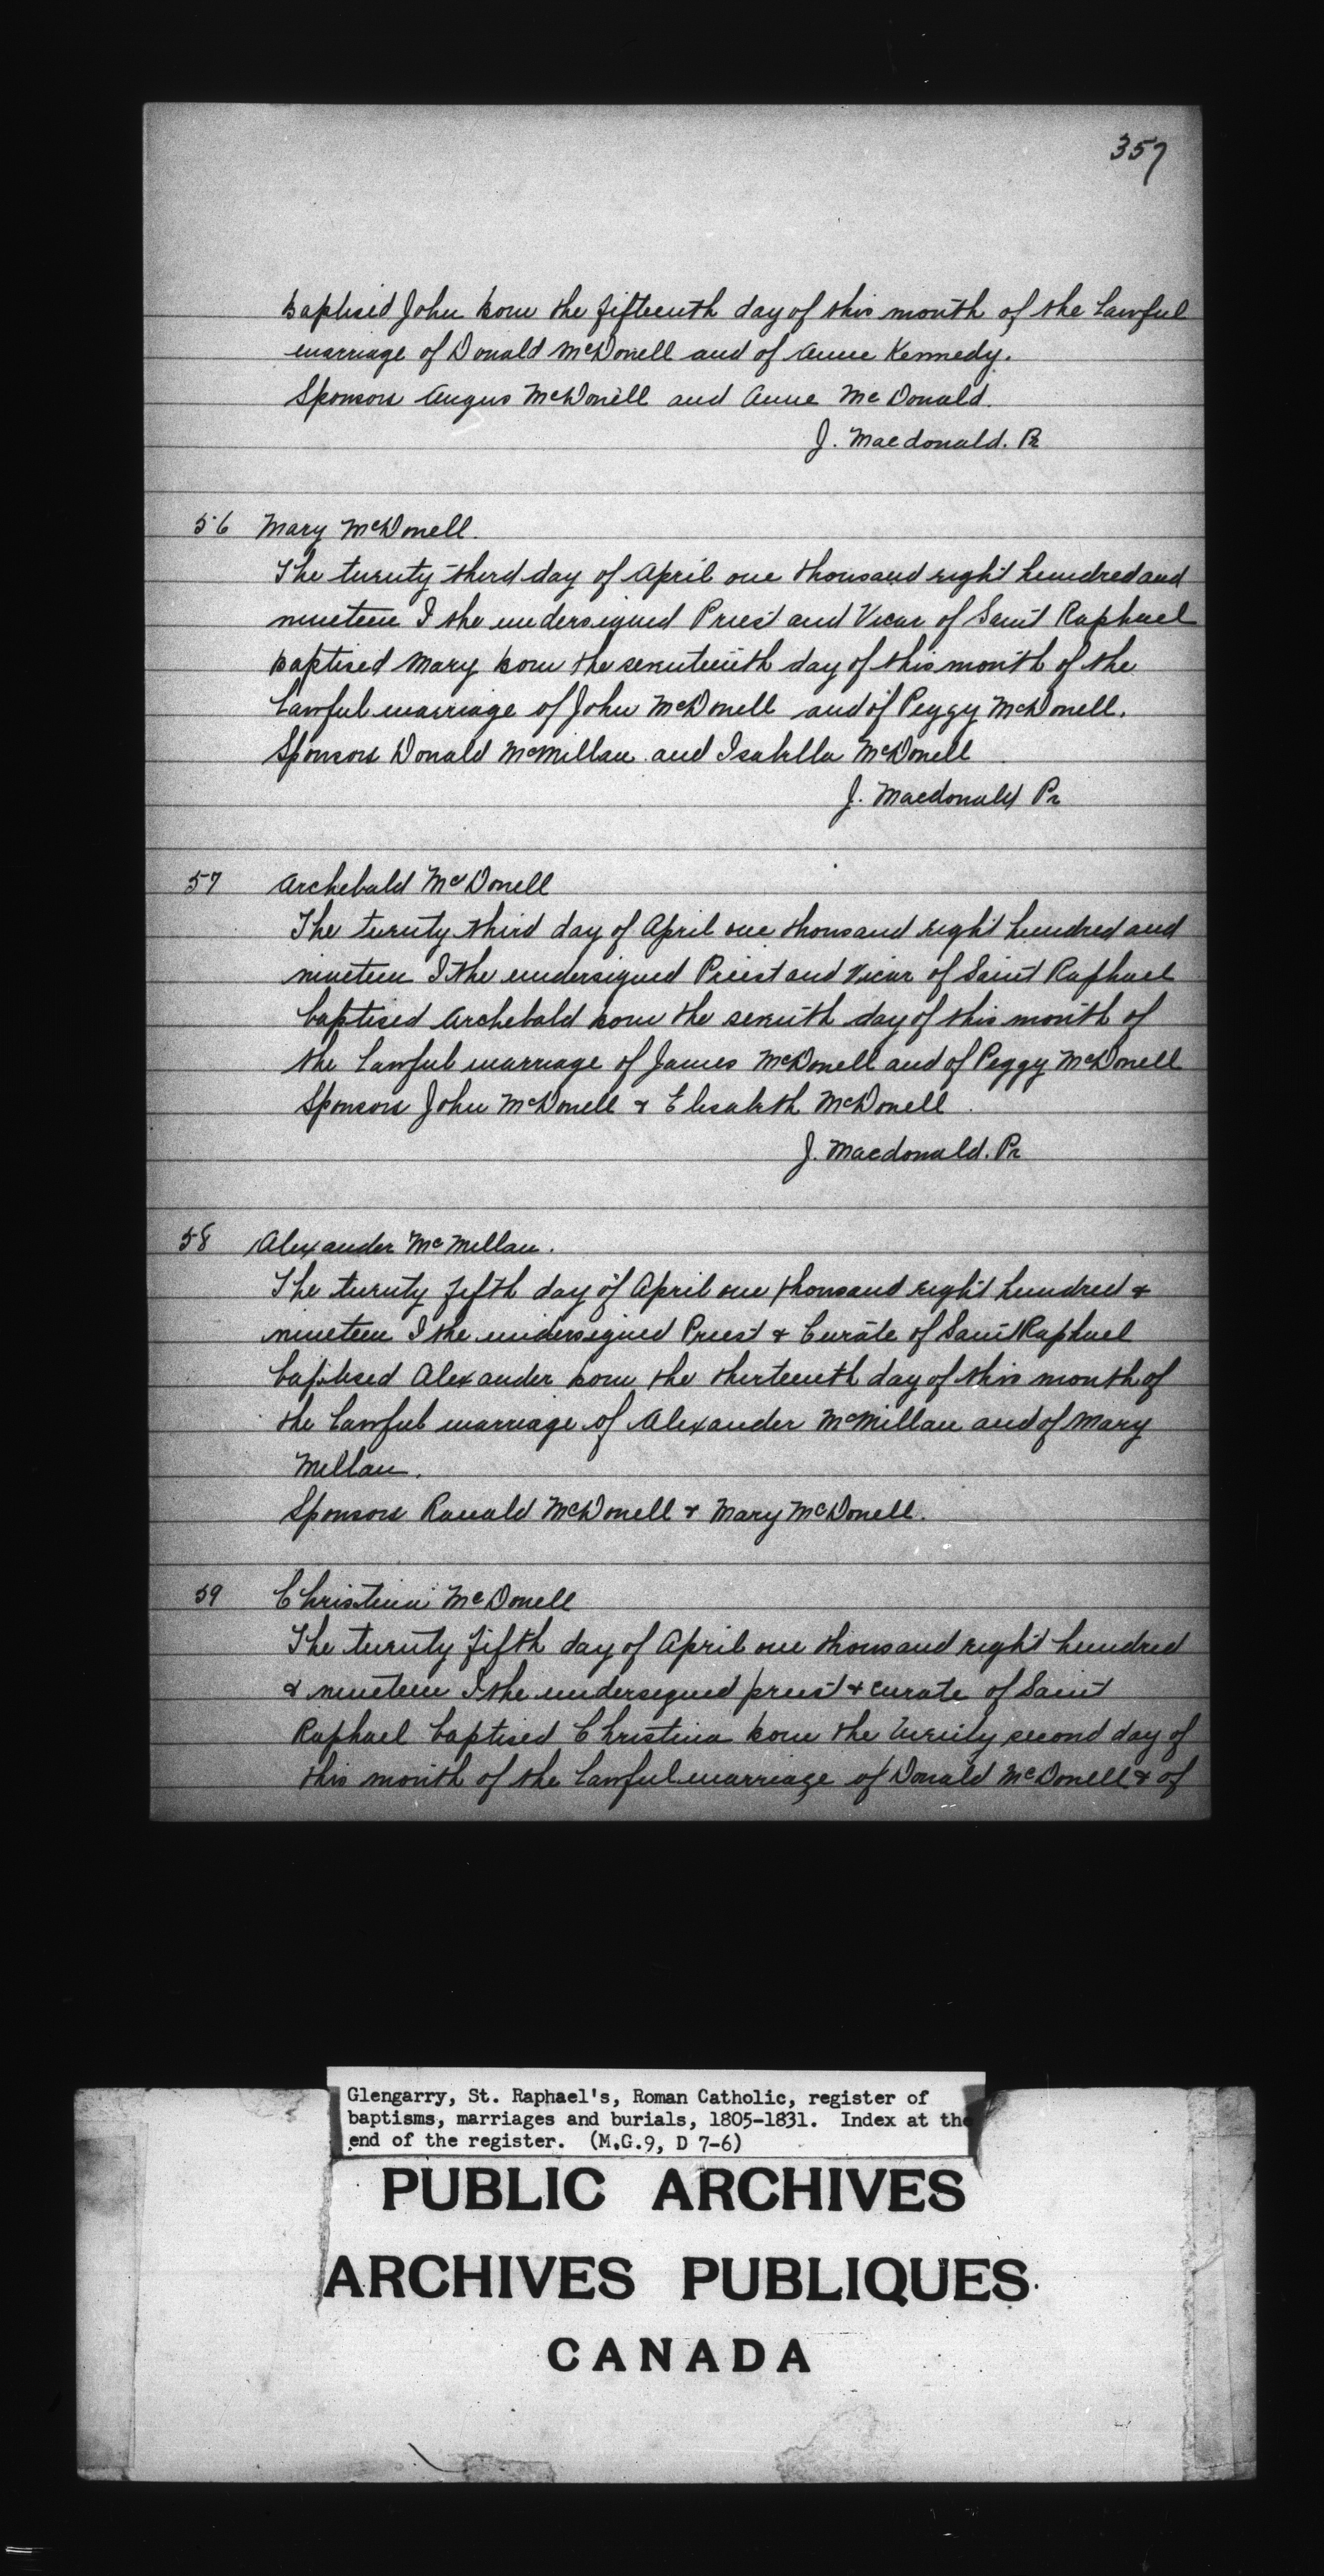 357
baptised John born the fifteenth day of this month of the lawful
marriage of Donald McDonell and of Anne Kennedy.
Sponsors Angus McDonell and Anne McDonald.
J. Macdonald. Pr
56 Mary McDonell.
The twenty third day of April one thousand eight hundred and
nineteen I the undersigned Priest and Vicar of Saint Raphael
baptised Mary born the seventeenth day of this month of the
lawful marriage of John McDonell and of Peggy McDonell.
Sponsors Donald McMillan and Isabella McDonell
J. Macdonald Pr
57 Archebald McDonell
The twenty third day of April one thousand eight hundred and
nineteen I the undersigned Priest and Vicar of Saint Raphael
baptised Archebald born the seventh day of this month of
the lawful marriage of James McDonell and of Peggy McDonell
Sponsors John McDonell & Elisabeth McDonell.
J. Macdonald. Pr
58 Alexander McMillan.
The twenty fifth day of April one thousand eight hundred &
nineteen I the undersigned Priest & Curate of Saint Raphael
baptised Alexander born the thirteenth day of this month of
the lawful marriage of Alexander McMillan and of Mary
Millan.
Sponsors Ranald McDonell & Mary McDonell.
59 Christina McDonell
The twenty fifth day of April one thousand eight hundred
& nineteen I the undersigned priest & curate of Saint
Raphael baptised Christina born the twenty second day of
this month of the lawful marriage of Donald McDonell & of
Glengarry, St. Raphael's, Roman Catholic, register of
baptisms, marriages and burials, 1805-1831. Index at the
end of the register. (M.G.9, D 7-6)
PUBLIC ARCHIVES
ARCHIVES PUBLIQUES
CANADA